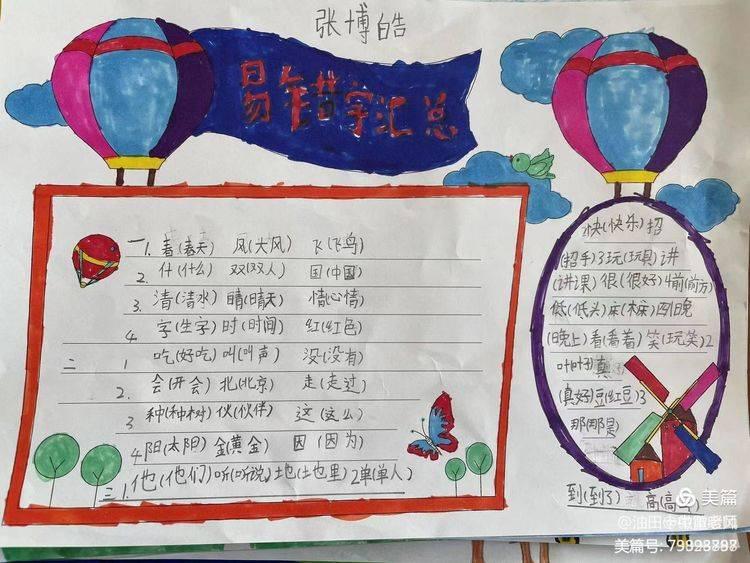 张博皓
易错字汇总
一1.春(春天) 风(大风) 飞(飞鸟)
2.什(什么) 双(双人) 国(中国)
3.清(清水) 晴(晴天) 情(心情)
4.字(生字) 时(时间) 红(红色)
二 1.吃(好吃) 叫(叫声) 没(没有)
2.会(开会) 北(北京) 走(走过)
3种(种树) 伙(伙伴) 这(这么)
4阳(太阳) 金(黄金) 因(因为)
三1.他(他们)听(听说)地(土也里)2单(单人)
快(快乐)招
(招手)3玩(玩具)讲
(讲课)很(很好)4前(前方)
低(低头)床(木床)四1晚
(晚上)看(看着)笑(玩笑)2
叶 真
(真好)豆(红豆)3
那(那是
到(到了)
高(高
美篇
美篇号: